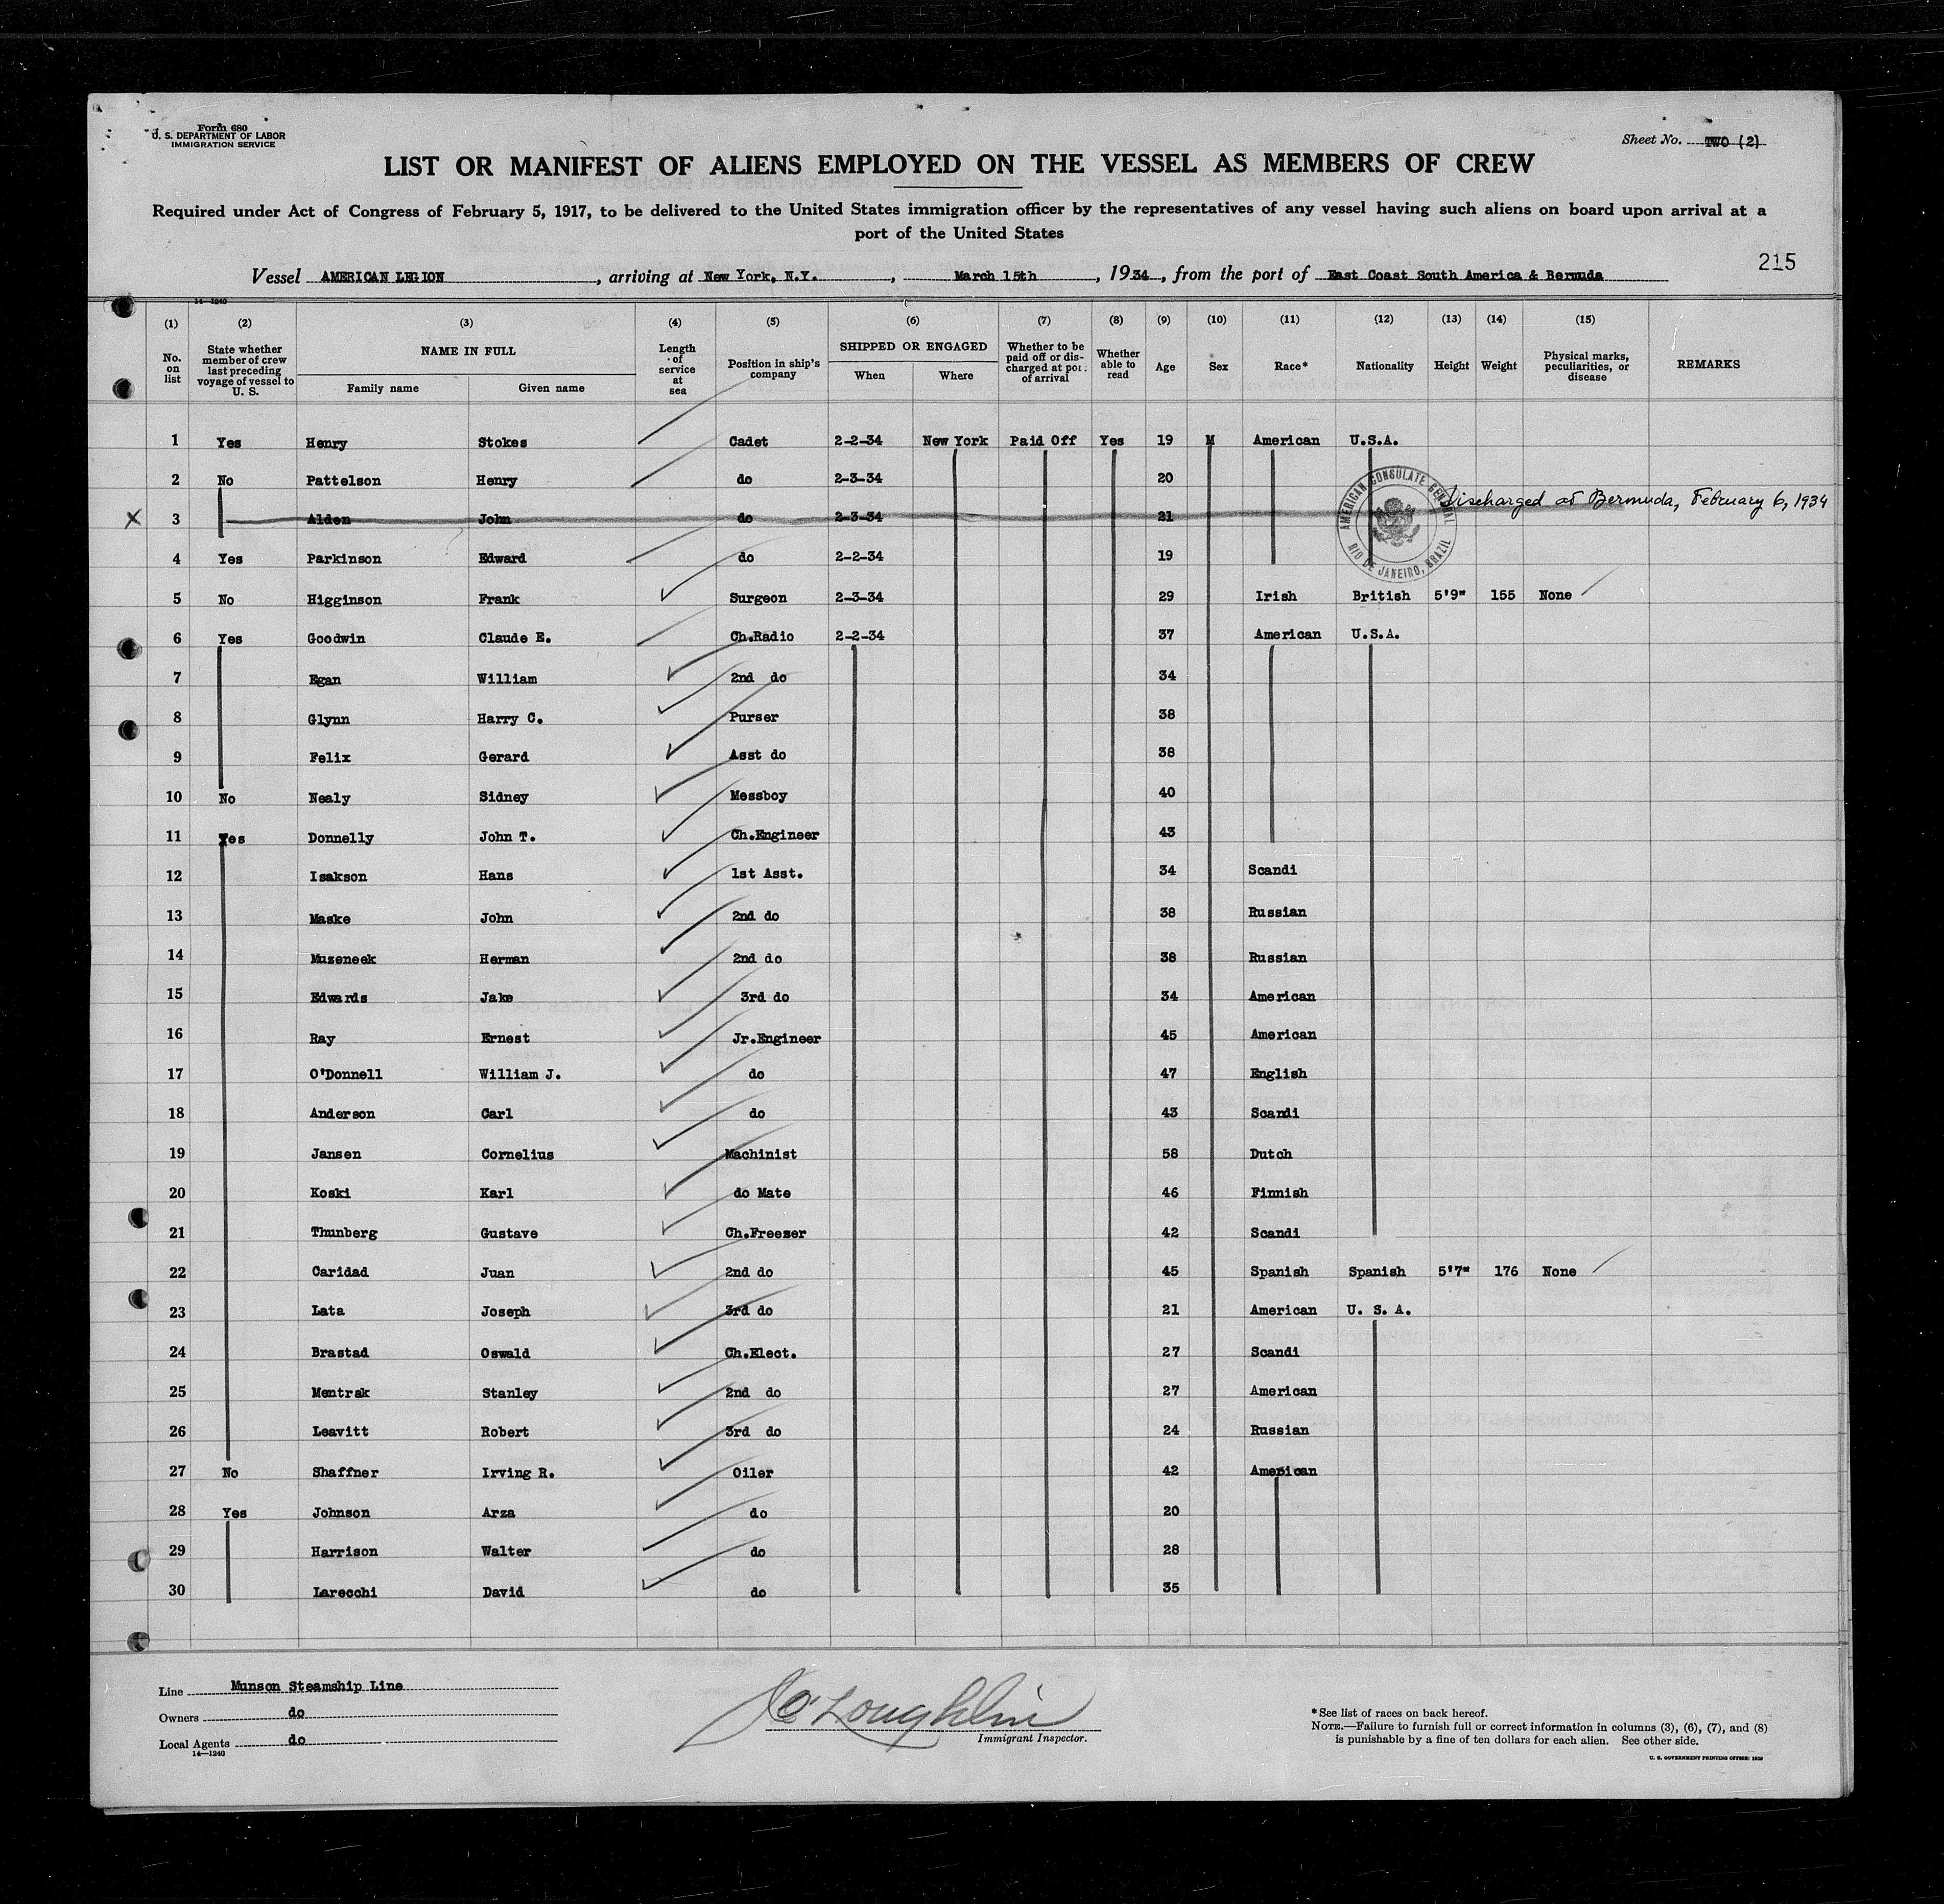 Form 680
U. S. DEPARTMENT OF LABOR
IMMIGRATION SERVICE
Sheet No. TWO (2)
LIST OR MANIFEST OF ALIENS EMPLOYED ON THE VESSEL AS MEMBERS OF CREW
Required under Act of Congress of February 5, 1917, to be delivered to the United States immigration officer by the representatives of any vessel having such aliens on board upon arrival at a
port of the United States
215
Vessel AMERICAN LEGION, arriving at New York, N.Y., March 15th, 1934, from the port of East Coast South America & Bermuda
14—1240
(1) (2) (3) (4) (5) (6) (7) (8) (9) (10) (11) (12) (13) (14) (15)
No. on list
State whether member of crew last preceding voyage of vessel to U. S.
NAME IN FULL
Family name Given name
Length of service at sea
Position in ship's company
SHIPPED OR ENGAGED
When Where
Whether to be paid off or discharged at port of arrival
Whether able to read
Age
Sex
Race*
Nationality
Height
Weight
Physical marks, peculiarities, or disease
REMARKS
1 Yes Henry Stokes Cadet 2-2-34 New York Paid Off Yes 19 M American U.S.A.
2 No Pattelson Henry do 2-3-34 20
AMERICAN CONSULATE GENERAL RIO DE JANEIRO, BRAZIL
Discharged at Bermuda, February 6, 1934
X 3 Alden John do 2-3-34 21
4 Yes Parkinson Edward do 2-2-34 19
5 No Higginson Frank Surgeon 2-3-34 29 Irish British 5'9" 155 None
6 Yes Goodwin Claude E. Ch.Radio 2-2-34 37 American U.S.A.
7 Egan William 2nd do 34
8 Glynn Harry C. Purser 38
9 Felix Gerard Asst do 38
10 No Nealy Sidney Messboy 40
11 Yes Donnelly John T. Ch.Engineer 43
12 Isakson Hans 1st Asst. 34 Scandi
13 Maske John 2nd do 38 Russian
14 Muzeneek Herman 2nd do 38 Russian
15 Edwards Jake 3rd do 34 American
16 Ray Ernest Jr.Engineer 45 American
17 O'Donnell William J. do 47 English
18 Anderson Carl do 43 Scandi
19 Jansen Cornelius Machinist 58 Dutch
20 Koski Karl do Mate 46 Finnish
21 Thunberg Gustave Ch.Freezer 42 Scandi
22 Caridad Juan 2nd do 45 Spanish Spanish 5'7" 176 None
23 Lata Joseph 3rd do 21 American U. S. A.
24 Brastad Oswald Ch.Elect. 27 Scandi
25 Mentrak Stanley 2nd do 27 American
26 Leavitt Robert 3rd do 24 Russian
27 No Shaffner Irving R. Oiler 42 American
28 Yes Johnson Arza do 20
29 Harrison Walter do 28
30 Larecchi David do 35
Line Munson Steamship Line
Owners do
Local Agents do
14—1240
O'Loughlin
Immigrant Inspector.
*See list of races on back hereof.
NOTE.—Failure to furnish full or correct information in columns (3), (6), (7), and (8)
is punishable by a fine of ten dollars for each alien. See other side.
U. S. GOVERNMENT PRINTING OFFICE: